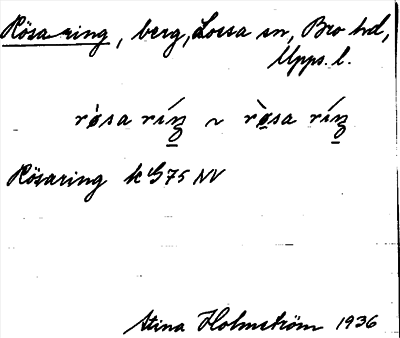 Rösa ring, berg, Lossa sn, Bro hd,
Upps. l.
rösa ríŋ ~ rösa ríŋ
Rösaring k G75 NV
Stina Holmström 1936